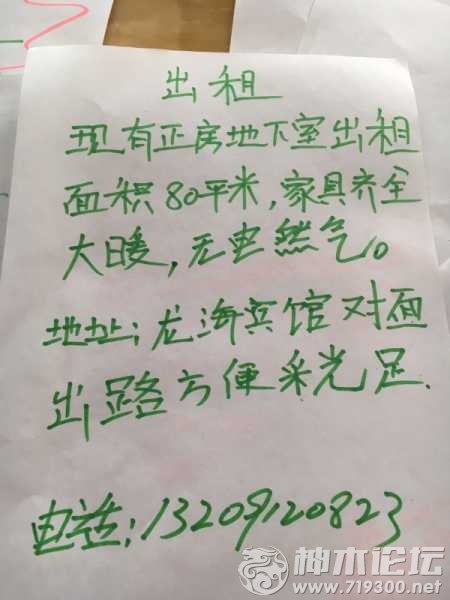 出租
现有正房地下室出租
面积80平米,家具齐全
大暖,无电然气。
地址:龙海宾馆对面
出路方便采光足.
电话:13209120823
神木论坛
www.719300.net